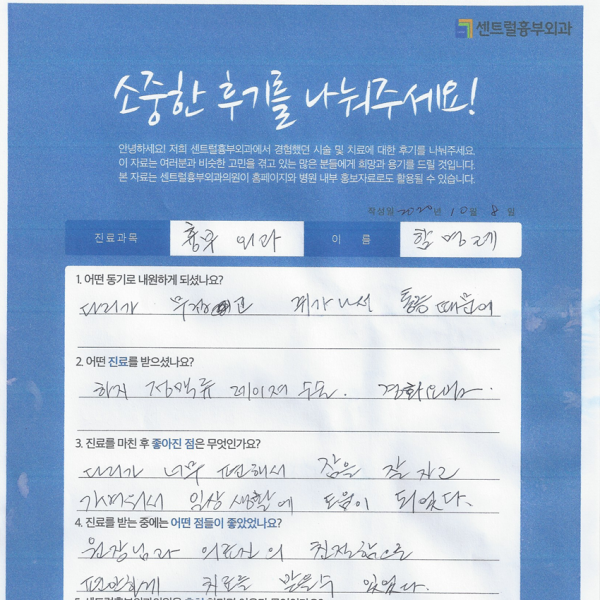 센트럴흉부외과
소중한 후기를 나눠주세요!
안녕하세요! 저희 센트럴흉부외과에서 경험했던 시술 및 치료에 대한 후기를 나눠주세요.
이 자료는 여러분과 비슷한 고민을 겪고 있는 많은 분들에게 희망과 용기를 드릴 것입니다.
본 자료는 센트럴흉부외과의원이 홈페이지와 병원 내부 홍보자료로도 활용될 수 있습니다.
작성일 년 10월 8일
진료과목 흉부 외과 이 름 함영제
1. 어떤 동기로 내원하게 되셨나요?
다리가 쥐가 나서 통증 때문에
2. 어떤 진료를 받으셨나요?
하지 정맥류 레이저 수술. 경화요법.
3. 진료를 마친 후 좋아진 점은 무엇인가요?
다리가 너무 편해서 잠을 잘 자고
가벼워서 일상생활에 도움이 되었다.
4. 진료를 받는 중에는 어떤 점들이 좋았었나요?
원장님과 의료진의 친절함으로
편안하게 치료를 받을수 있었다.